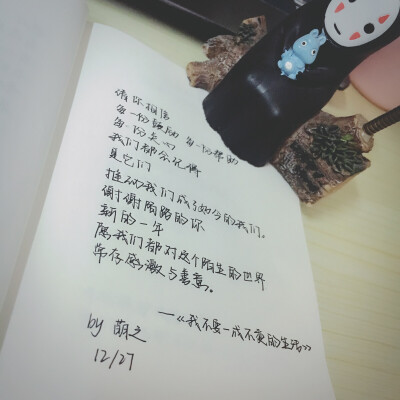 请你相信
每一份鼓励 每一份帮助
每一份关心
我们都会记得
是它们
推动我们成了如今的我们。
谢谢陌路的你
新的一年
愿我们都对这个陌生的世界
常存感激与善意。
—《我不要一成不变的生活》
by 萌之
12/27